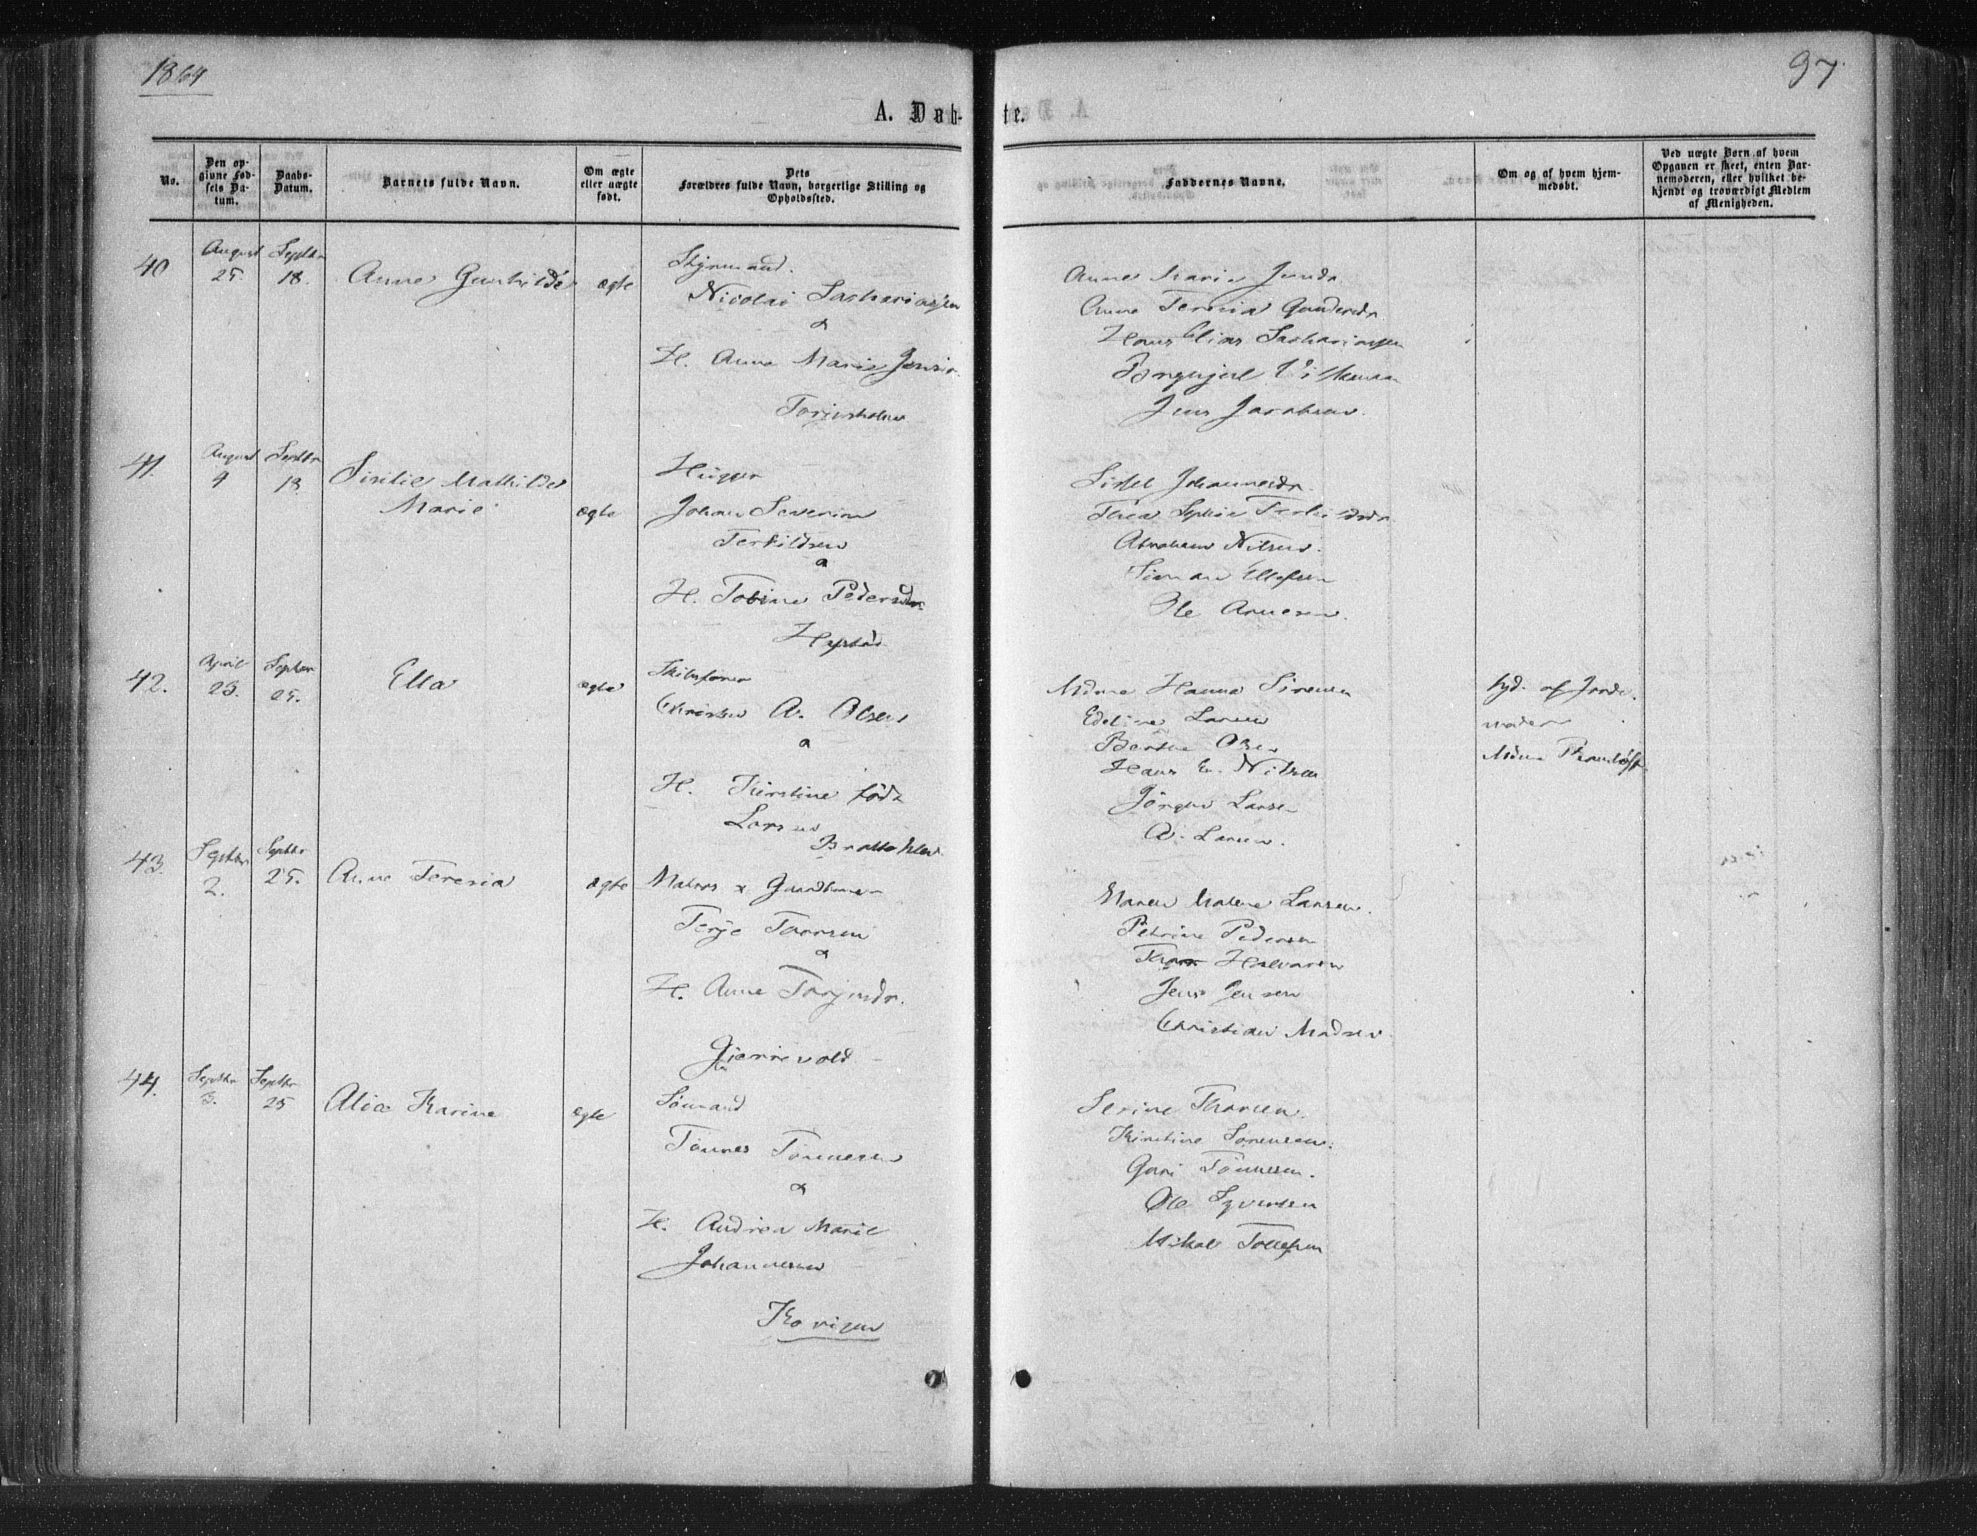 1864
97.
A. Døb- te.
No.
Den op-
givne Fød-
sels Da-
tum.
Daabs-
Datum.
Barnets fulde Navn.
Om ægte
eller uægte
født.
Dets
Forældres fulde Navn, borgerlige Stilling og
Opholdssted.
Faddernes Navne.
Om og af hvem hjem-
medøbt.
Ved uægte Børn af hvem
Opgaven er skeet, enten Bar-
nemoderen, eller hvilket be-
kjendt og troværdigt Medlem
af Menigheden.
40
August
25.
Septbr
18.
Anne Gunhilde
ægte
Styrmand.
Nicolai Sachariassen
&
H. Anne Marie Jensdr.
Torjusholm
Anne Marie Jensdr
Anne Teresia Gundersdr.
Hans Elias Sachariassen
Jens Jacobsen.
41.
August
4
Septbr
18.
Sisilie Mathilde
Marie
ægte
Johan Severin
Terkildsen
&
H. Tobine Pedersdr.
Sissel Johannesdr.
Thea Sophie Terkildsdr
Abraham Nilsen.
Simon Ellefsen
Ole Arnesen.
42.
April
23.
Septbr
25.
Ella
ægte
Skibsfører
Christen A. Olsen
&
H. Kirstine født
Larsen
Brattekleiv
Mdme Hanna Sørensen
Edeline Larsen
Berthe Olsen
Hans E. Nilsen
Jörgen Larsen
A. Larsen.
hjd. af Jorde-
moder
43.
Septbr
2.
Septbr
25.
Anne Teresia
ægte
Matros & Gaardbruger
Terje Thorsen
&
H. Anne Torjusdr.
Gjerrevold
Maren Malene Larsen.
Petrine Pedersen
Thor Halvorsen
Jens Jensen
Christian Madsen
44.
Septbr
3.
Septbr
25
Alice Karine
ægte
Sömand
Tönnes Tönnesen
&
H. Andrea Marie
Johannesen
Kovigen
Serine Thorsen.
Kirstine Sörensen.
Guri Tönnesen.
Ole Syversen
Mikal Tollefsen